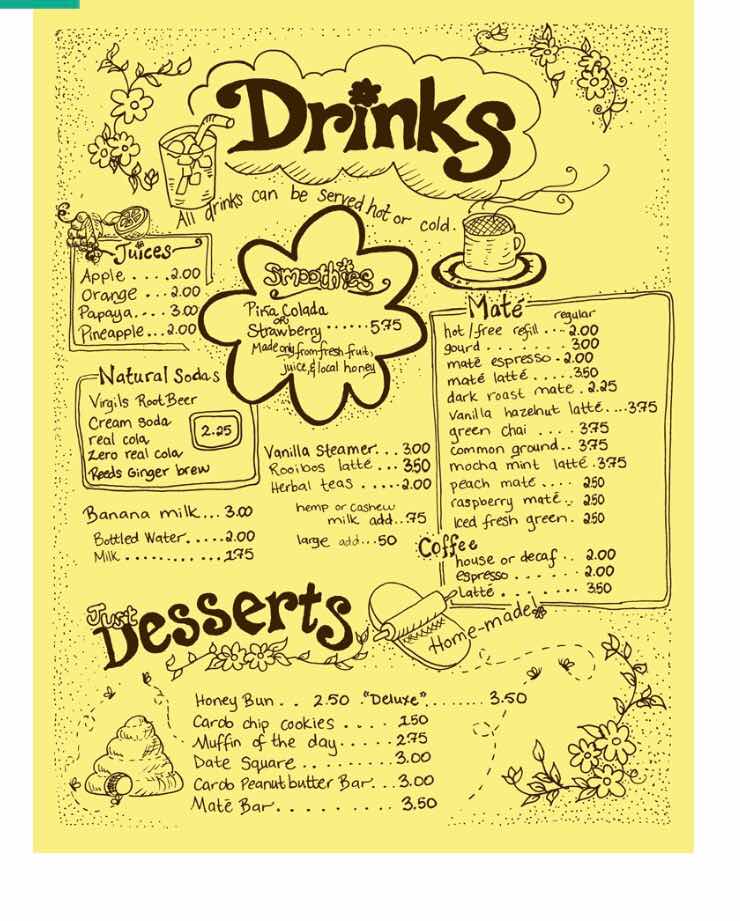 Drinks
All drinks can be served hot or cold.
Juices
Apple....2.00
Orange...2.00
Papaya....3.00
Pineapple...2.00
Smoothies
Piña Colada
or
Strawberry......5.75
Made only from fresh fruit,
juice, & local honey
Natural Sodas
Virgils Root Beer
Cream Soda
real cola
Zero real cola
Reeds Ginger brew
2.25
Banana milk...3.00
Bottled Water.....2.00
Milk............1.75
Vanilla Steamer...3.00
Rooibos latté...3.50
Herbal teas.....2.00
hemp or cashew
milk add..75
large add...50
Maté
regular
hot/free refill...2.00
gourd........3.00
maté espresso.2.00
maté latté.....3.50
dark roast mate.2.25
Vanilla hazelnut latté....3.75
green chai....3.75
common ground..3.75
mocha mint latté.3.75
peach maté....2.50
raspberry maté..2.50
Iced fresh green.2.50
Coffee
house or decaf..2.00
espresso.......2.00
Latté........3.50
Just
Desserts
Home-made
Honey Bun..2.50 "Deluxe"........3.50
Carob chip cookies....1.50
Muffin of the day......2.75
Date Square.........3.00
Carob Peanut butter Bar...3.00
Maté Bar..........3.50